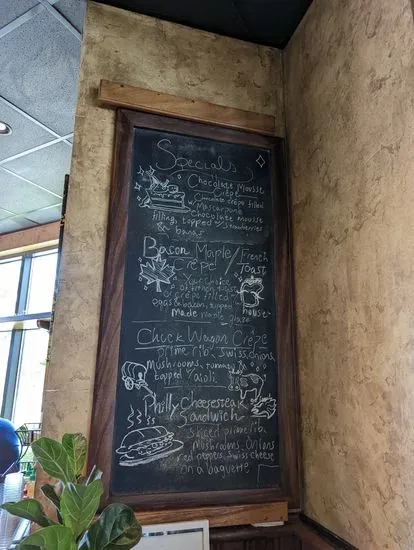 Specials
Chocolate Mousse
Crêpe
Chocolate crêpe filled
w/ Mascarpone
chocolate mousse
filling, topped w/ strawberries
& bananas
Bacon Maple / French
Crêpe Toast
Your choice
of french toast
crêpe filled w/
eggs & bacon, topped
house
made maple glaze
Chuck Wagon Crêpe
prime rib, swiss, onions,
mushrooms,
topped w/ aioli
Philly Cheesesteak
Sandwich
sliced prime rib,
mushrooms, onions
red peppers, swiss cheese
on a baguette